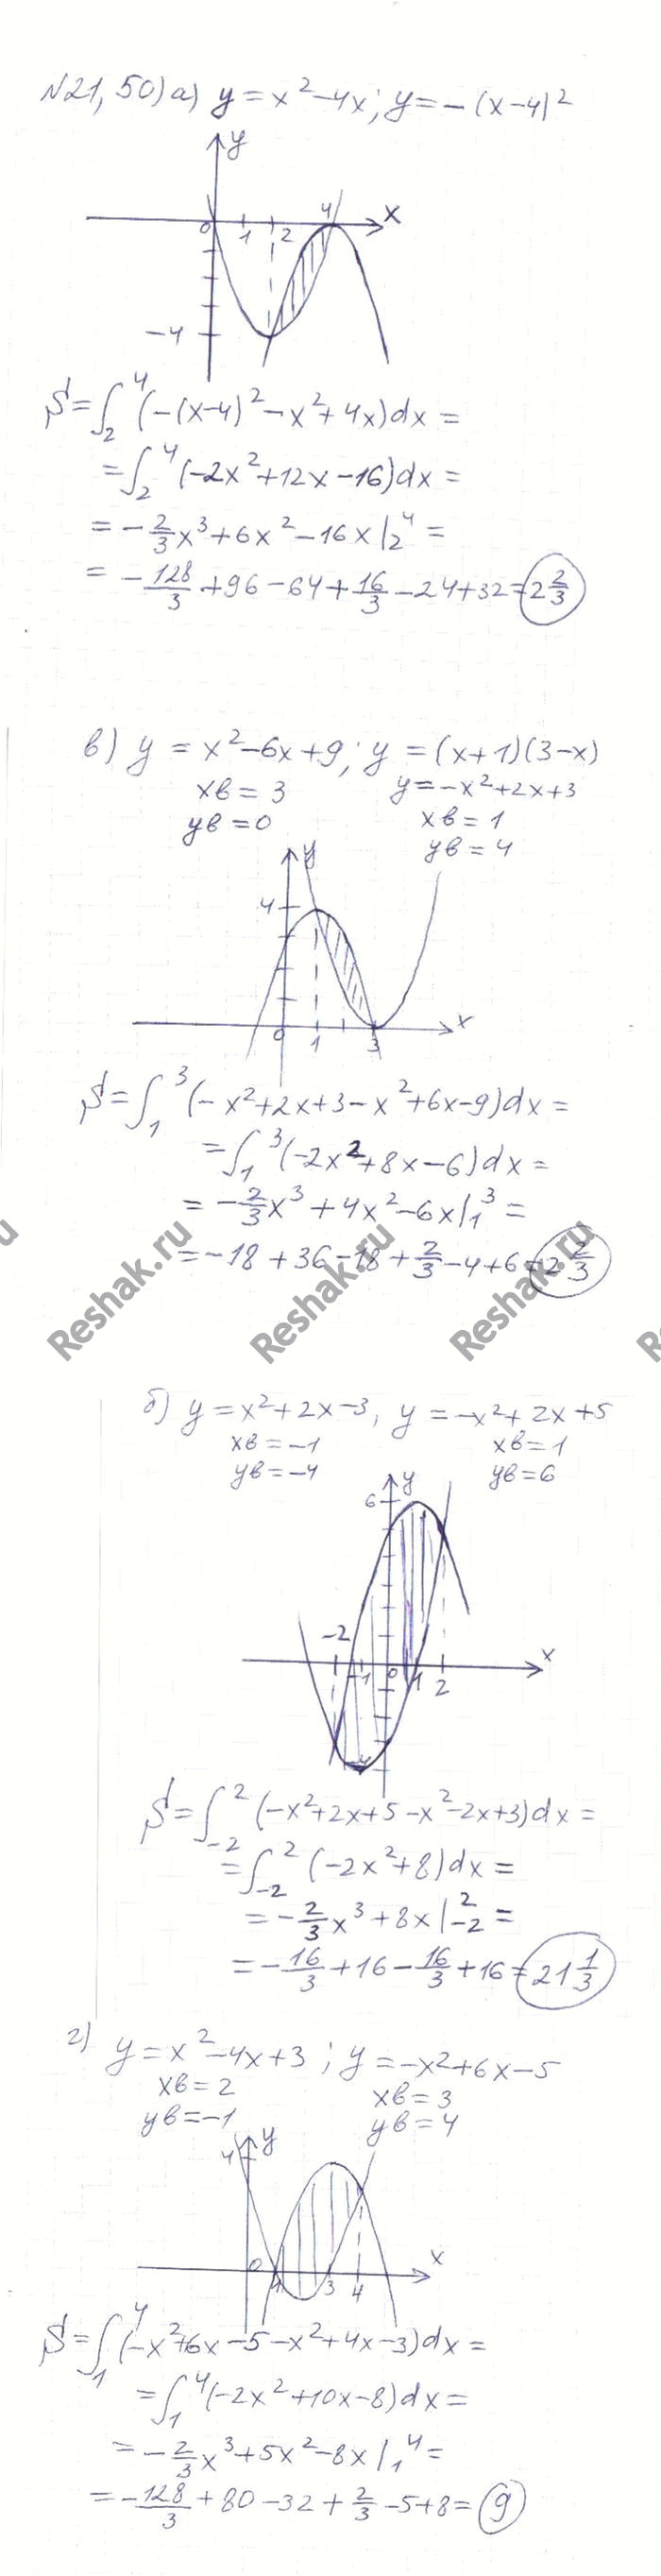 №21,50) а) y = x² - 4x; y = -(x-4)²
y
4
x
0 1 2
-4
S = ∫₂⁴ (-(x-4)² - x² + 4x)dx =
= ∫₂⁴ (-2x² + 12x - 16)dx =
= -2/3 x³ + 6x² - 16x |₂⁴ =
= -128/3 + 96 - 64 + 16/3 - 24 + 32 = 2 2/3
в) y = x² - 6x + 9; y = (x+1)(3-x)
xв = 3 y = -x² + 2x + 3
yв = 0 xв = 1
y yв = 4
4
x
0 1 3
S = ∫₁³ (-x² + 2x + 3 - x² + 6x - 9)dx =
= ∫₁³ (-2x² + 8x - 6)dx =
= -2/3 x³ + 4x² - 6x |₁³ =
= -18 + 36 - 18 + 2/3 - 4 + 6 = 2 2/3
Reshak.ru Reshak.ru Reshak.ru
б) y = x² + 2x - 3, y = -x² + 2x + 5
xв = -1 xв = 1
yв = -4 yв = 6
6 y
-2
x
-1 0 1 2
-4
S = ∫₋₂² (-x² + 2x + 5 - x² - 2x + 3)dx =
= ∫₋₂² (-2x² + 8)dx =
= -2/3 x³ + 8x |₋₂² =
= -16/3 + 16 - 16/3 + 16 = 21 1/3
г) y = x² - 4x + 3; y = -x² + 6x - 5
xв = 2 xв = 3
yв = -1 yв = 4
4 y
x
0 1 3 4
S = ∫₁⁴ (-x² + 6x - 5 - x² + 4x - 3)dx =
= ∫₁⁴ (-2x² + 10x - 8)dx =
= -2/3 x³ + 5x² - 8x |₁⁴ =
= -128/3 + 80 - 32 + 2/3 - 5 + 8 = 9